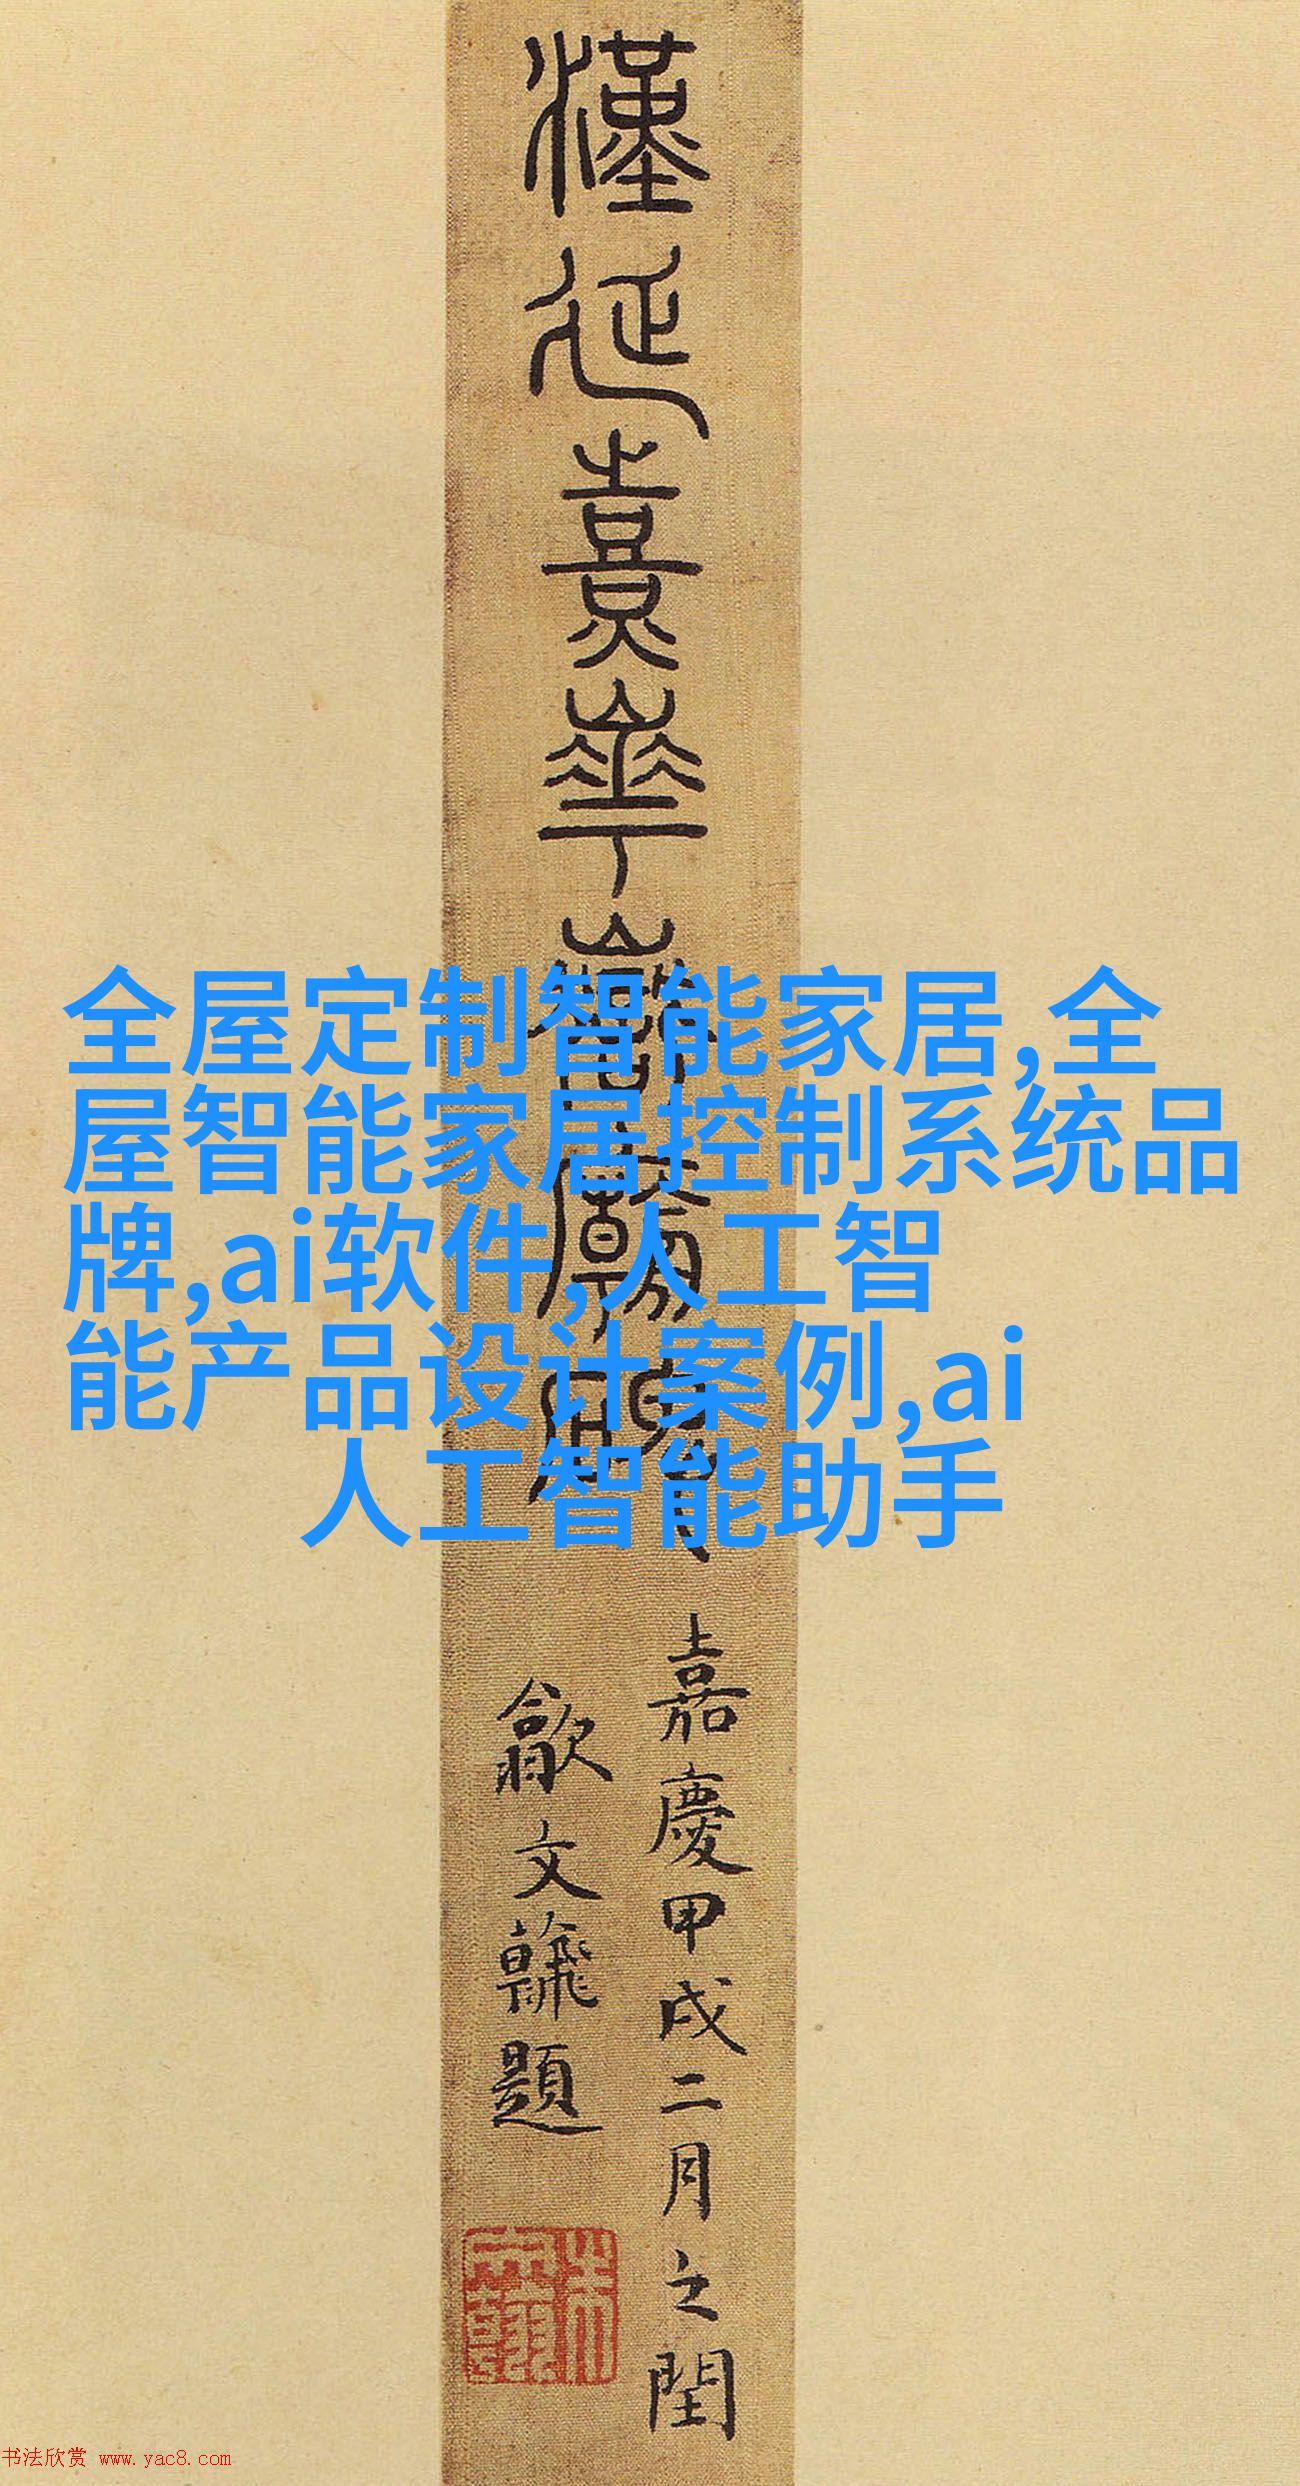 漢延熹華嶽廟碑
全屋定制智能家居,全
屋智能家居控制系统品
牌,ai软件,人工智
能产品设计案例,ai
人工智能助手
嘉慶甲戌二月之閏
歙文題
书法欣赏 www.yac8.com